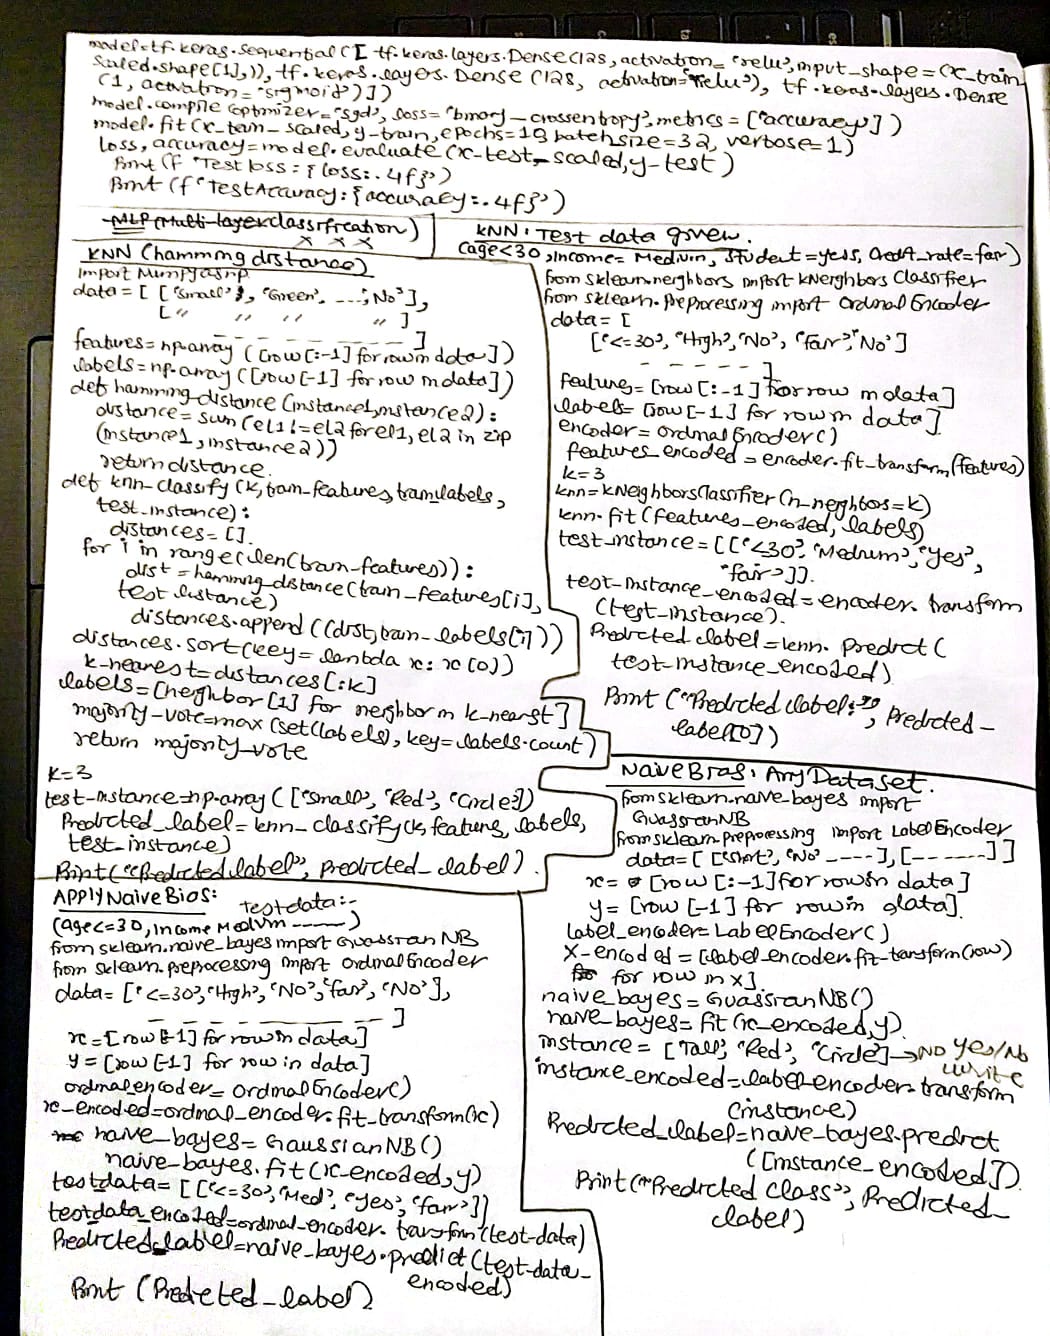 model=tf.keras.Sequential([ tf.keras.layers.Dense(128, activation= 'relu', input_shape=(x_train
scaled.shape[1],)), tf.keras.layers.Dense (128, activation='relu'), tf.keras.layers.Dense
(1, activation= 'sigmoid')])
model.compile (optimizer= 'sgd', loss= 'binary-crossentropy', metrics= ['accuracy'])
model.fit (x-train_scaled, y-train, epochs=10, batchsize=32, verbose=1)
loss, accuracy=model.evaluate (x-test_scaled, y-test)
Print (f 'Test loss: {loss:.4f}')
Print (f 'Test Accuracy: {accuracy:.4f}')
MLP (Multi-layer classification)
x x x
KNN (hamming distance)
import Numpy as np
data = [ ['Small', 'Green', ---; 'No'],
[ " " " " " ]
- - - - - - - ]
features=np.array ([row[:-1] for row in data])
labels=np.array ([row [-1] for row in data])
def hamming-distance (instance1, instance2):
distance= sum (el1!=el2 for el1, el2 in zip
(instance1, instance2))
return distance.
def knn-classify (k, train-features, train labels,
test-instance):
distances= [].
for i in range(len(train-features)):
dist =hamming_distance(train-features[i],
test instance)
distances.append ((dist, train-labels[i]))
distances.sort(key= lambda x: x[0])
k-nearest=distances[:k]
labels=[neighbor[1] for neighbor in k-nearst]
majority-vote=max (set(labels), key=labels.count)
return majority_vote
k=3
test-instance=np.array (['Small', 'Red', 'Circle'])
Predicted_label=knn-classify(k, features, labels,
test_instance)
Print("Predicted label", predicted_label).
KNN: Test data given.
(age<30, income= Medium, student=yes, Credit_rate=fair)
from sklearn.neighbors import KNeighbors Classifier
from sklearn.preprocessing import Ordinal Encoder
data= [
['<=30', 'High', 'No', 'Fair', 'No']
- - - - - ]
features= [row[:-1] for row in data]
labels= [row[-1] for row in data]
encoder=Ordinal Encoder()
features_encoded=encoder.fit_transform(features)
k=3
knn=KNeighborsClassifier(n_neighbors=k)
knn.fit(features_encoded, labels)
test_instance=[['<30', 'Medium', 'Yes',
'fair']].
test-instance_encoded=encoder.transform
(test_instance).
Predicted label=knn. Predict (
test-instance_encoded)
Print ("Predicted label:", Predicted-
label[0])
Naive Bias: Any Dataset.
from sklearn.naive_bayes import
GuassianNB
from sklearn.preprocessing import Label Encoder
data= [ ['Short', 'No' ----], [------]]
x= [row [:-1] for row in data]
y= [row [-1] for row in data].
label_encoder= Label Encoder()
X-encoded=[label_encoder.fit-transform(row)
for row in x].
naive_bayes= GuassianNB()
naive_bayes= fit (x_encoded,y).
instance= ['Tall', 'Red', 'Circle'] → No yes/No
write
instance_encoded=label-encoder.transform
(instance)
Predicted_label=naive-bayes.predict
([instance_encoded]).
Print("Predicted class", Predicted_
label)
APPLY Naive Bios: testdata:-
(age<=30, Income Medium ----)
from sklearn.naive_bayes import Guassian NB
from sklearn.preprocessing import Ordinal Encoder
data= ['<=30', 'High', 'No', 'fair', 'No'],
- - - - - - - ]
x=[row [-1] for row in data]
y= [row [-1] for row in data]
ordinal_encoder= Ordinal Encoder()
x-encoded=ordinal_encoder.fit_transform(x)
naive_bayes= GaussianNB()
naive-bayes.fit(x-encoded, y)
testdata= [['<=30', 'Med', 'yes', 'fair']]
testdata_encoded=ordinal-encoder. transform(test-data)
Predicted_label=naive-bayes.predict (test-data-
encoded)
Print (Predicted_label)